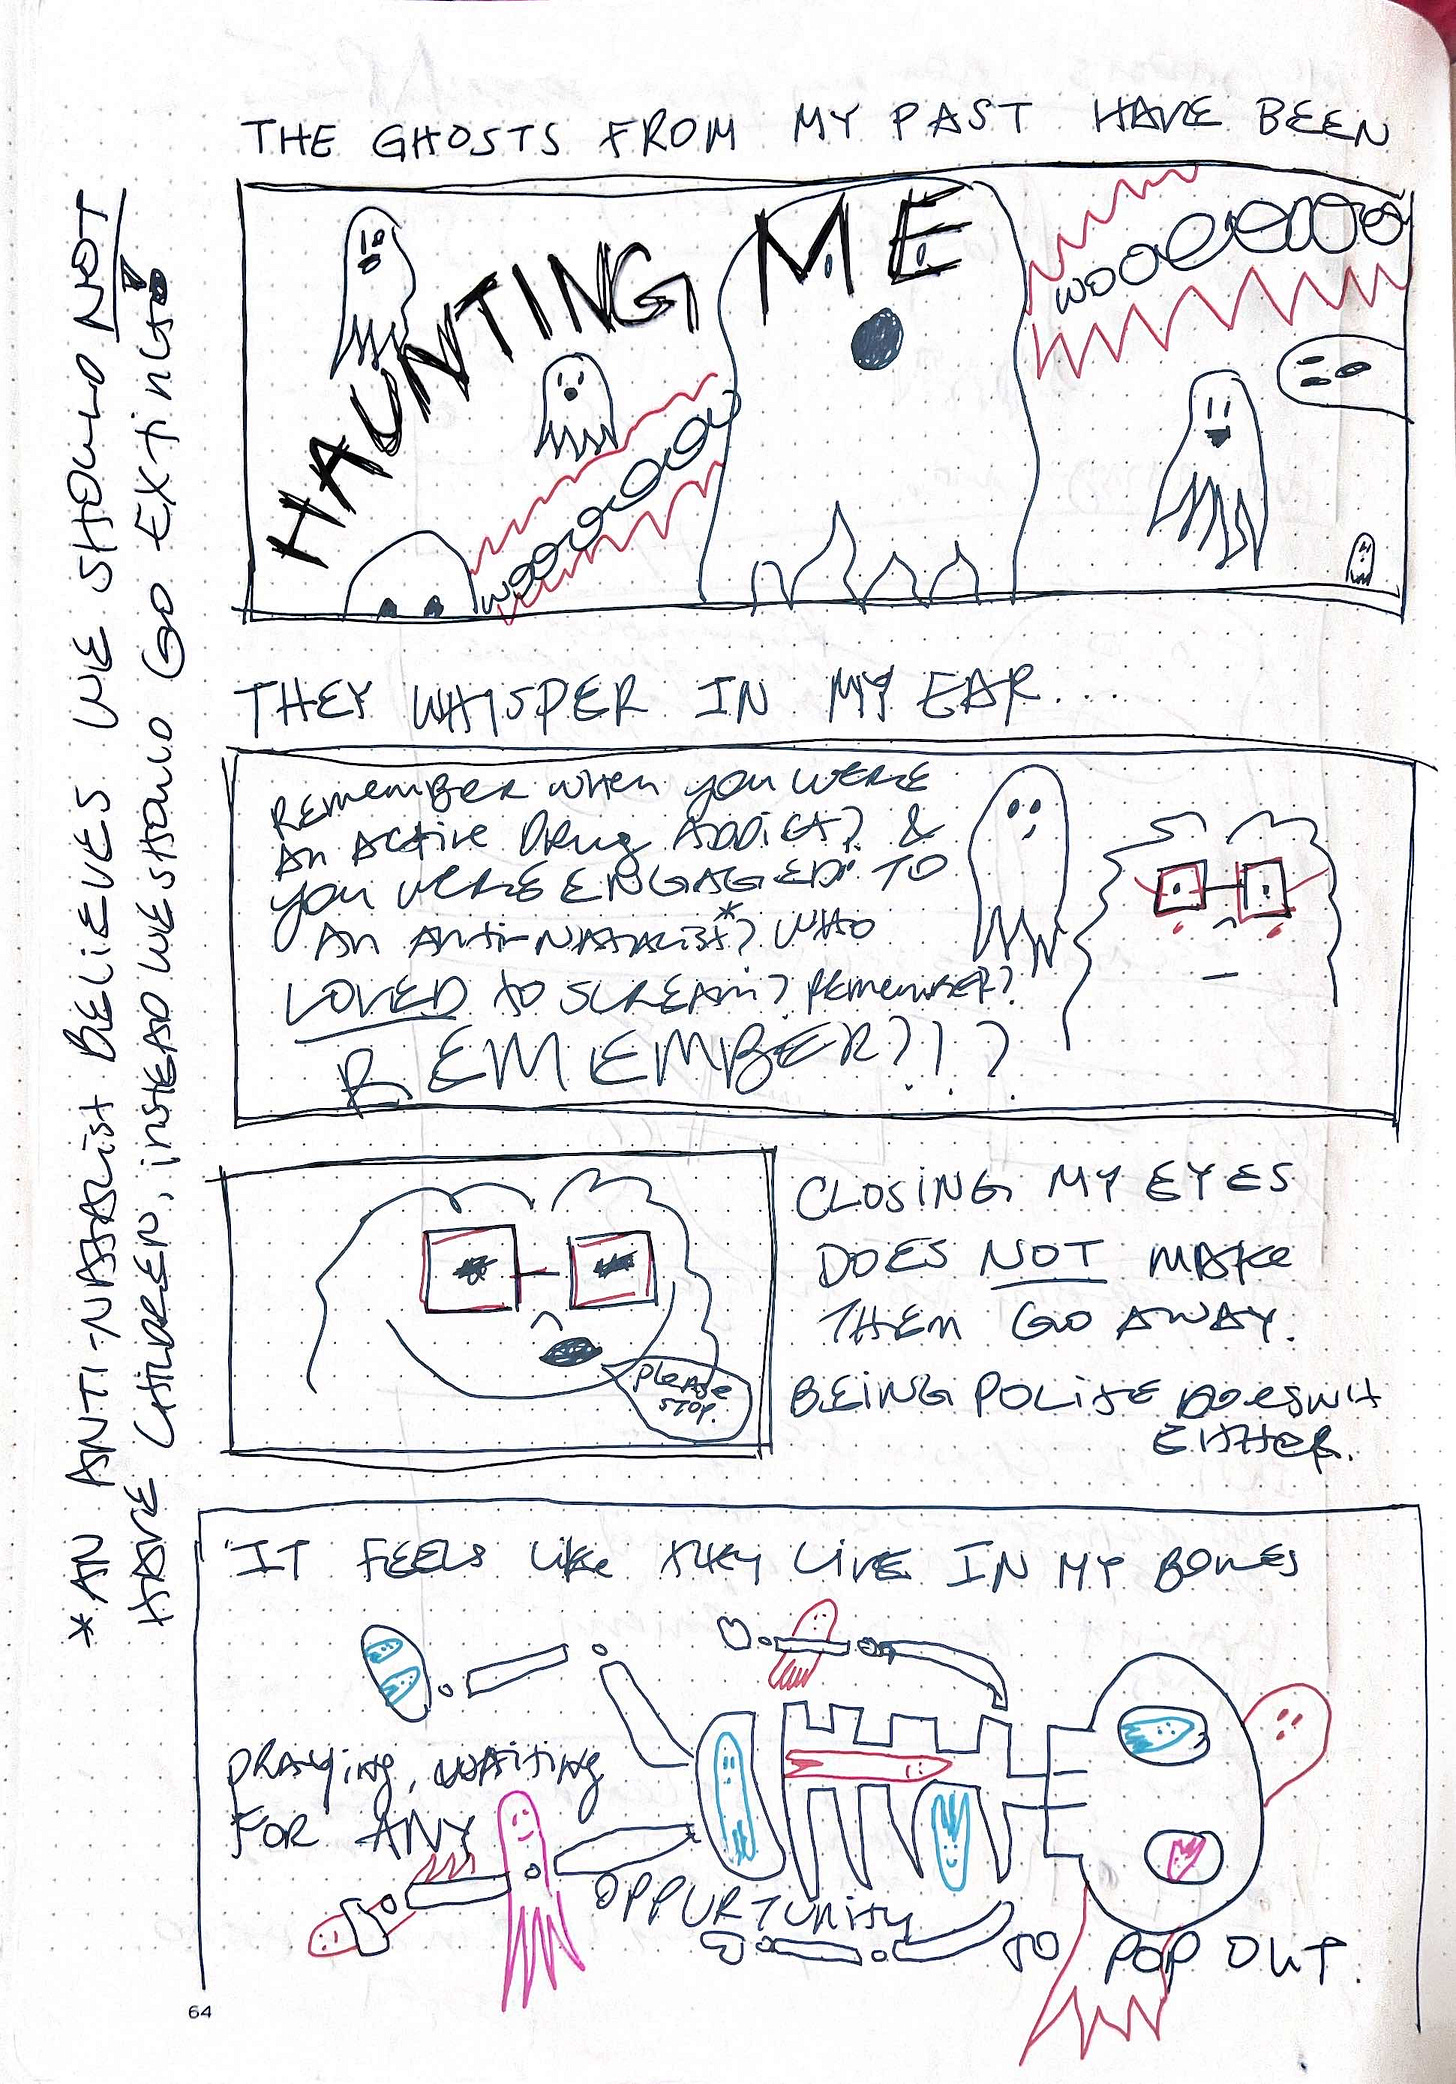 THE GHOSTS FROM MY PAST HAVE BEEN
HAUNTING ME
WOOOOOOOO
WOOOOOOOO
THEY WHISPER IN MY EAR....
REMEMBER WHEN YOU WERE
AN ACTIVE DRUG ADDICT? &
YOU WERE ENGAGED TO
AN ANTI-NATALIST*? WHO
LOVED TO SCREAM? REMEMBER?
REMEMBER?!?
CLOSING MY EYES
DOES NOT MAKE
THEM GO AWAY.
BEING POLITE DOESN'T
EITHER.
PLEASE
STOP.
IT FEELS LIKE THEY LIVE IN MY BONES
PRAYING, WAITING
FOR ANY
OPPURTUNITY
TO POP OUT.
*AN ANTI-NATALIST BELIEVES WE SHOULD NOT
HAVE CHILDREN, INSTEAD WE SHOULD GO EXTINCT!
64